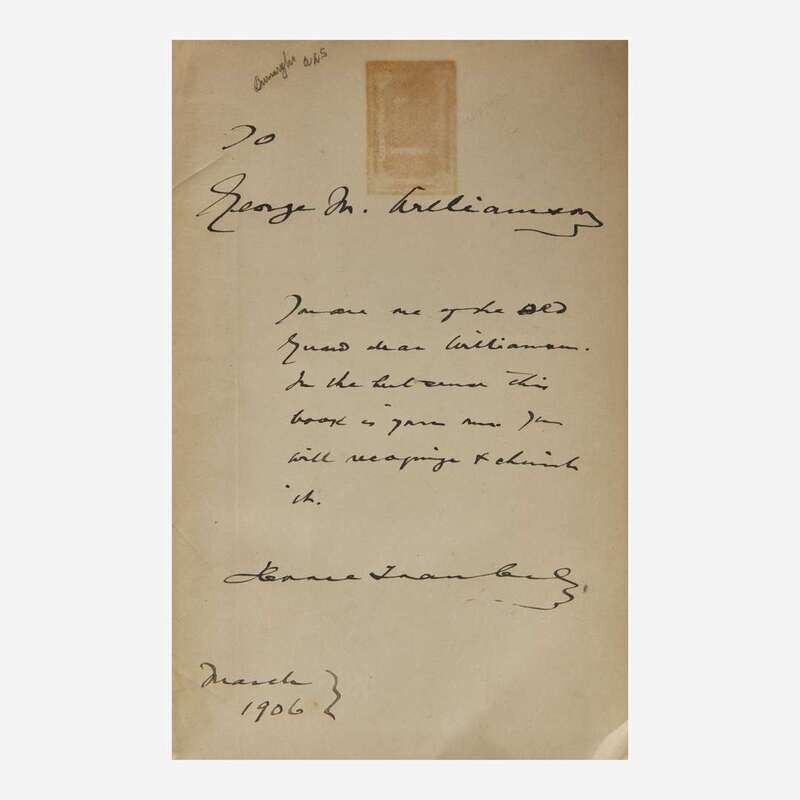 Burroughs ALS
To
George M. Williamson
You are one of the old
Guard dear Williamson.
In the best sense this
book is yours now. You
will recognize & cherish
it.
Horace Traubel
March
1906